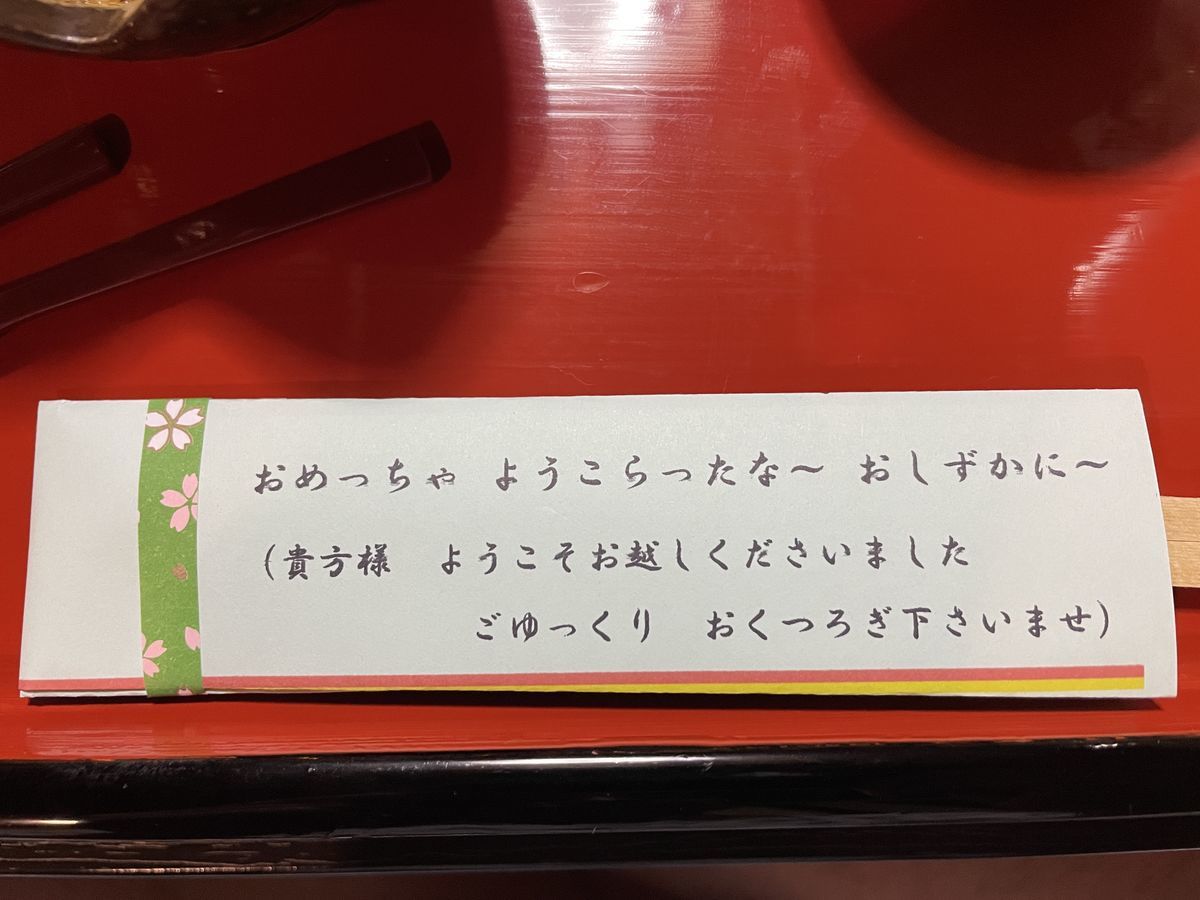 おめっちゃ ようこらったな～ おしずかに～
（貴方様　ようこそお越しくださいました
ごゆっくり　おくつろぎ下さいませ）